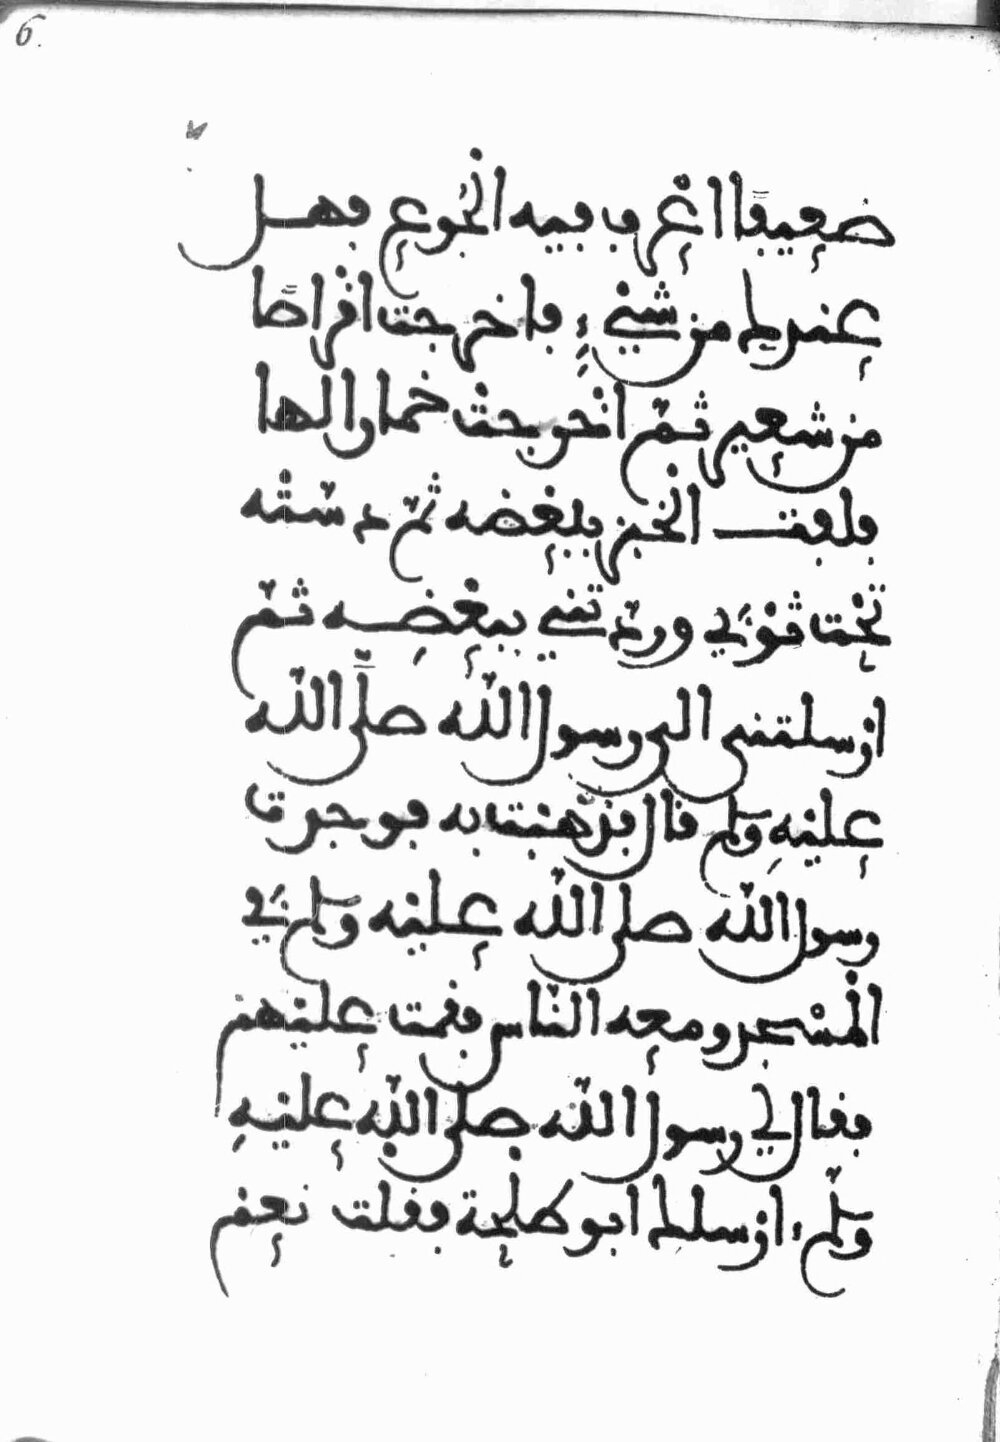 6.
ضعيفا اعرف فيه الجوع فهل
عندك من شيء فاخرجت اقراصا
من شعير ثم اخرجت خمارا لها
فلفت الخبز ببعضه ثم دسته
تحت ثوبي وردتني ببعضه ثم
ارسلتني الى رسول الله صلى الله
عليه وسلم قال فذهبت به فوجدت
رسول الله صلى الله عليه وسلم في
المسجد ومعه الناس فقمت عليهم
فقال لي رسول الله صلى الله عليه
وسلم ارسلك ابو طلحة فقلت نعم